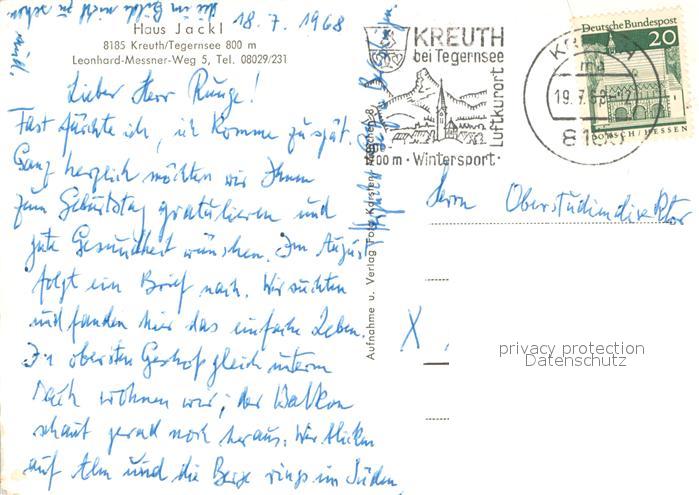 18.7.1968
Haus Jackl
8185 Kreuth/Tegernsee 800 m
Leonhard-Messner-Weg 5, Tel. 08029/231
Lieber Herr Runge!
Fast fürchte ich, ich komme zu spät.
Ganz herzlich möchten wir Ihnen
zum Geburtstag gratulieren und
gute Gesundheit wünschen. Im August
folgt ein Brief nach. Wir suchten
und fanden hier das einfache Leben.
Im obersten Geschoß gleich unterm
Dach wohnen wir; der Balkon
schaut gerad noch heraus. Wir blicken
auf Alm und die Berge rings im Süden,
die im Bilde nicht zu sehen
sind.
Aufnahme u. Verlag Foto
KREUTH
bei Tegernsee
Luftkurort
800 m · Wintersport ·
19.7.68
8185
Deutsche Bundespost
20
LORSCH / HESSEN
Herrn Oberstudiendirektor
X
privacy protection
Datenschutz